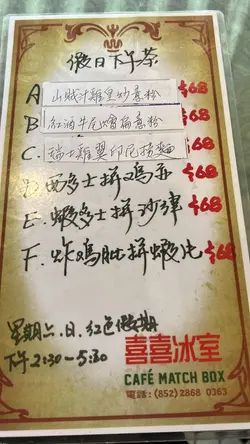 假日下午茶
A 山賊汁雞皇炒意粉 $68
B 紅酒牛尾燴扁意粉 $68
C. 瑞士雞翼印尼撈麵 $68
D. 西多士拼鸡亦 $68
E. 蝦多士拼沙律 $68
F. 炸鸡肶拼蝦片 $68
星期六.日.紅色假期
下午2:30-5:30
喜喜冰室
CAFÉ MATCH BOX
電話:(852) 2868 0363